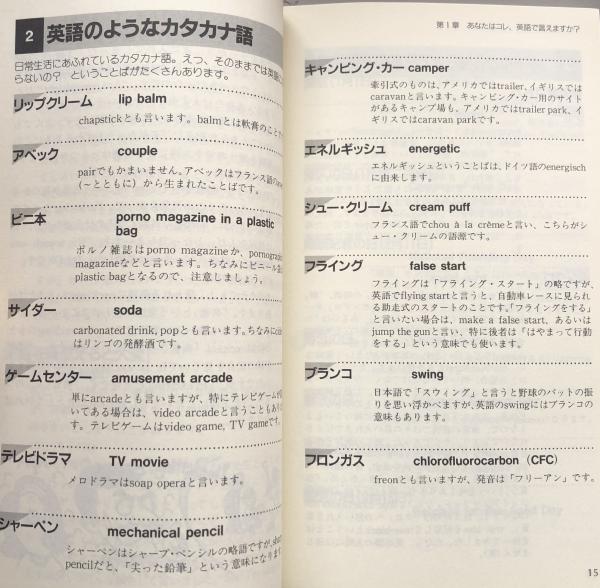 2 英語のようなカタカナ語
日常生活にあふれているカタカナ語。えっ、そのままでは英語に
らないの? ということばがたくさんあります。
リップクリーム lip balm
chapstickとも言います。balmとは軟膏のこと
アベック couple
pairでもかまいません。アベックはフランス語の
(〜とともに)から生まれたことばです。
ビニ本 porno magazine in a plastic
bag
ポルノ雑誌はporno magazineか、
magazineなどと言います。ちなみにビニール
plastic bagとなるので、注意しましょう。
サイダー soda
carbonated drink, popとも言います。ちなみに
はリンゴの発酵酒です。
ゲームセンター amusement arcade
単にarcadeとも言いますが、特にテレビゲームが
いてある場合は、video arcadeと言うことも
す。テレビゲームはvideo game, TV gameです
テレビドラマ TV movie
メロドラマはsoap operaと言います。
シャーペン mechanical pencil
シャーペンはシャープ・ペンシルの略語ですが、
pencilだと、「尖った鉛筆」という意味になり
第1章 あなたはコレ、英語で言えますか?
キャンピング・カー camper
牽引式のものは、アメリカではtrailer、イギリスでは
caravanと言います。キャンピング・カー用のサイト
があるキャンプ場も、アメリカではtrailer park、イ
ギリスではcaravan parkです。
エネルギッシュ energetic
エネルギッシュということばは、ドイツ語のenergisch
に由来します。
シュー・クリーム cream puff
フランス語でchou à la crèmeと言い、こちらがシ
ュー・クリームの語源です。
フライング false start
フライングは「フライング・スタート」の略ですが、
英語でflying startと言うと、自動車レースに見られ
る助走式のスタートのことです。「フライングをする」
と言いたい場合は、make a false start、あるいは
jump the gunと言い、特に後者は「はやまって行動
をする」という意味でも使います。
ブランコ swing
日本語で「スウィング」と言うと野球のバットの振
りを思い浮かべますが、英語のswingにはブランコの
意味もあります。
フロンガス chlorofluorocarbon (CFC)
freonとも言いますが、発音は「フリーアン」です。
15